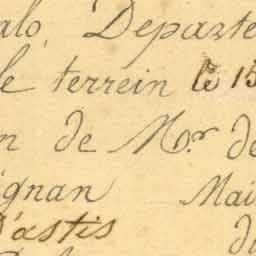 alo, Departe
le terrein le 15
n de Mr. de
ignan Mai
D'astis d